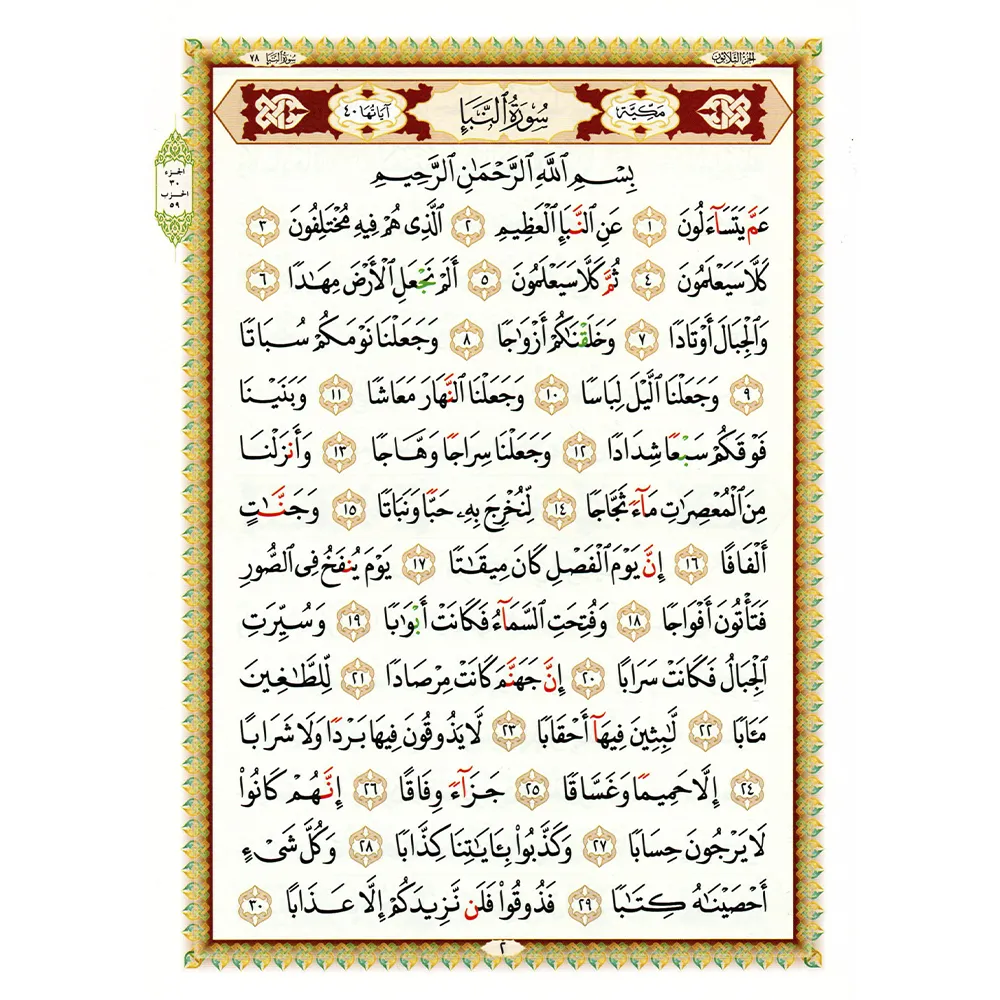 الجزء الثلاثون
سورة النبإ ٧٨
مكية
سُورَةُ ٱلنَّبَإِ
آياتها ٤٠
الجزء
٣٠
الحزب
٥٩
بِسْمِ ٱللَّهِ ٱلرَّحْمَٰنِ ٱلرَّحِيمِ
عَمَّ يَتَسَآءَلُونَ ١ عَنِ ٱلنَّبَإِ ٱلْعَظِيمِ ٢ ٱلَّذِى هُمْ فِيهِ مُخْتَلِفُونَ ٣
كَلَّا سَيَعْلَمُونَ ٤ ثُمَّ كَلَّا سَيَعْلَمُونَ ٥ أَلَمْ نَجْعَلِ ٱلْأَرْضَ مِهَٰدًا ٦
وَٱلْجِبَالَ أَوْتَادًا ٧ وَخَلَقْنَٰكُمْ أَزْوَٰجًا ٨ وَجَعَلْنَا نَوْمَكُمْ سُبَاتًا
٩ وَجَعَلْنَا ٱلَّيْلَ لِبَاسًا ١٠ وَجَعَلْنَا ٱلنَّهَارَ مَعَاشًا ١١ وَبَنَيْنَا
فَوْقَكُمْ سَبْعًا شِدَادًا ١٢ وَجَعَلْنَا سِرَاجًا وَهَّاجًا ١٣ وَأَنزَلْنَا
مِنَ ٱلْمُعْصِرَٰتِ مَآءً ثَجَّاجًا ١٤ لِّنُخْرِجَ بِهِۦ حَبًّا وَنَبَاتًا ١٥ وَجَنَّٰتٍ
أَلْفَافًا ١٦ إِنَّ يَوْمَ ٱلْفَصْلِ كَانَ مِيقَٰتًا ١٧ يَوْمَ يُنفَخُ فِى ٱلصُّورِ
فَتَأْتُونَ أَفْوَاجًا ١٨ وَفُتِحَتِ ٱلسَّمَآءُ فَكَانَتْ أَبْوَٰبًا ١٩ وَسُيِّرَتِ
ٱلْجِبَالُ فَكَانَتْ سَرَابًا ٢٠ إِنَّ جَهَنَّمَ كَانَتْ مِرْصَادًا ٢١ لِّلطَّٰغِينَ
مَـَٔابًا ٢٢ لَّٰبِثِينَ فِيهَآ أَحْقَابًا ٢٣ لَّا يَذُوقُونَ فِيهَا بَرْدًا وَلَا شَرَابًا
٢٤ إِلَّا حَمِيمًا وَغَسَّاقًا ٢٥ جَزَآءً وِفَاقًا ٢٦ إِنَّهُمْ كَانُوا۟
لَا يَرْجُونَ حِسَابًا ٢٧ وَكَذَّبُوا۟ بِـَٔايَٰتِنَا كِذَّابًا ٢٨ وَكُلَّ شَىْءٍ
أَحْصَيْنَٰهُ كِتَٰبًا ٢٩ فَذُوقُوا۟ فَلَن نَّزِيدَكُمْ إِلَّا عَذَابًا ٣٠
٢